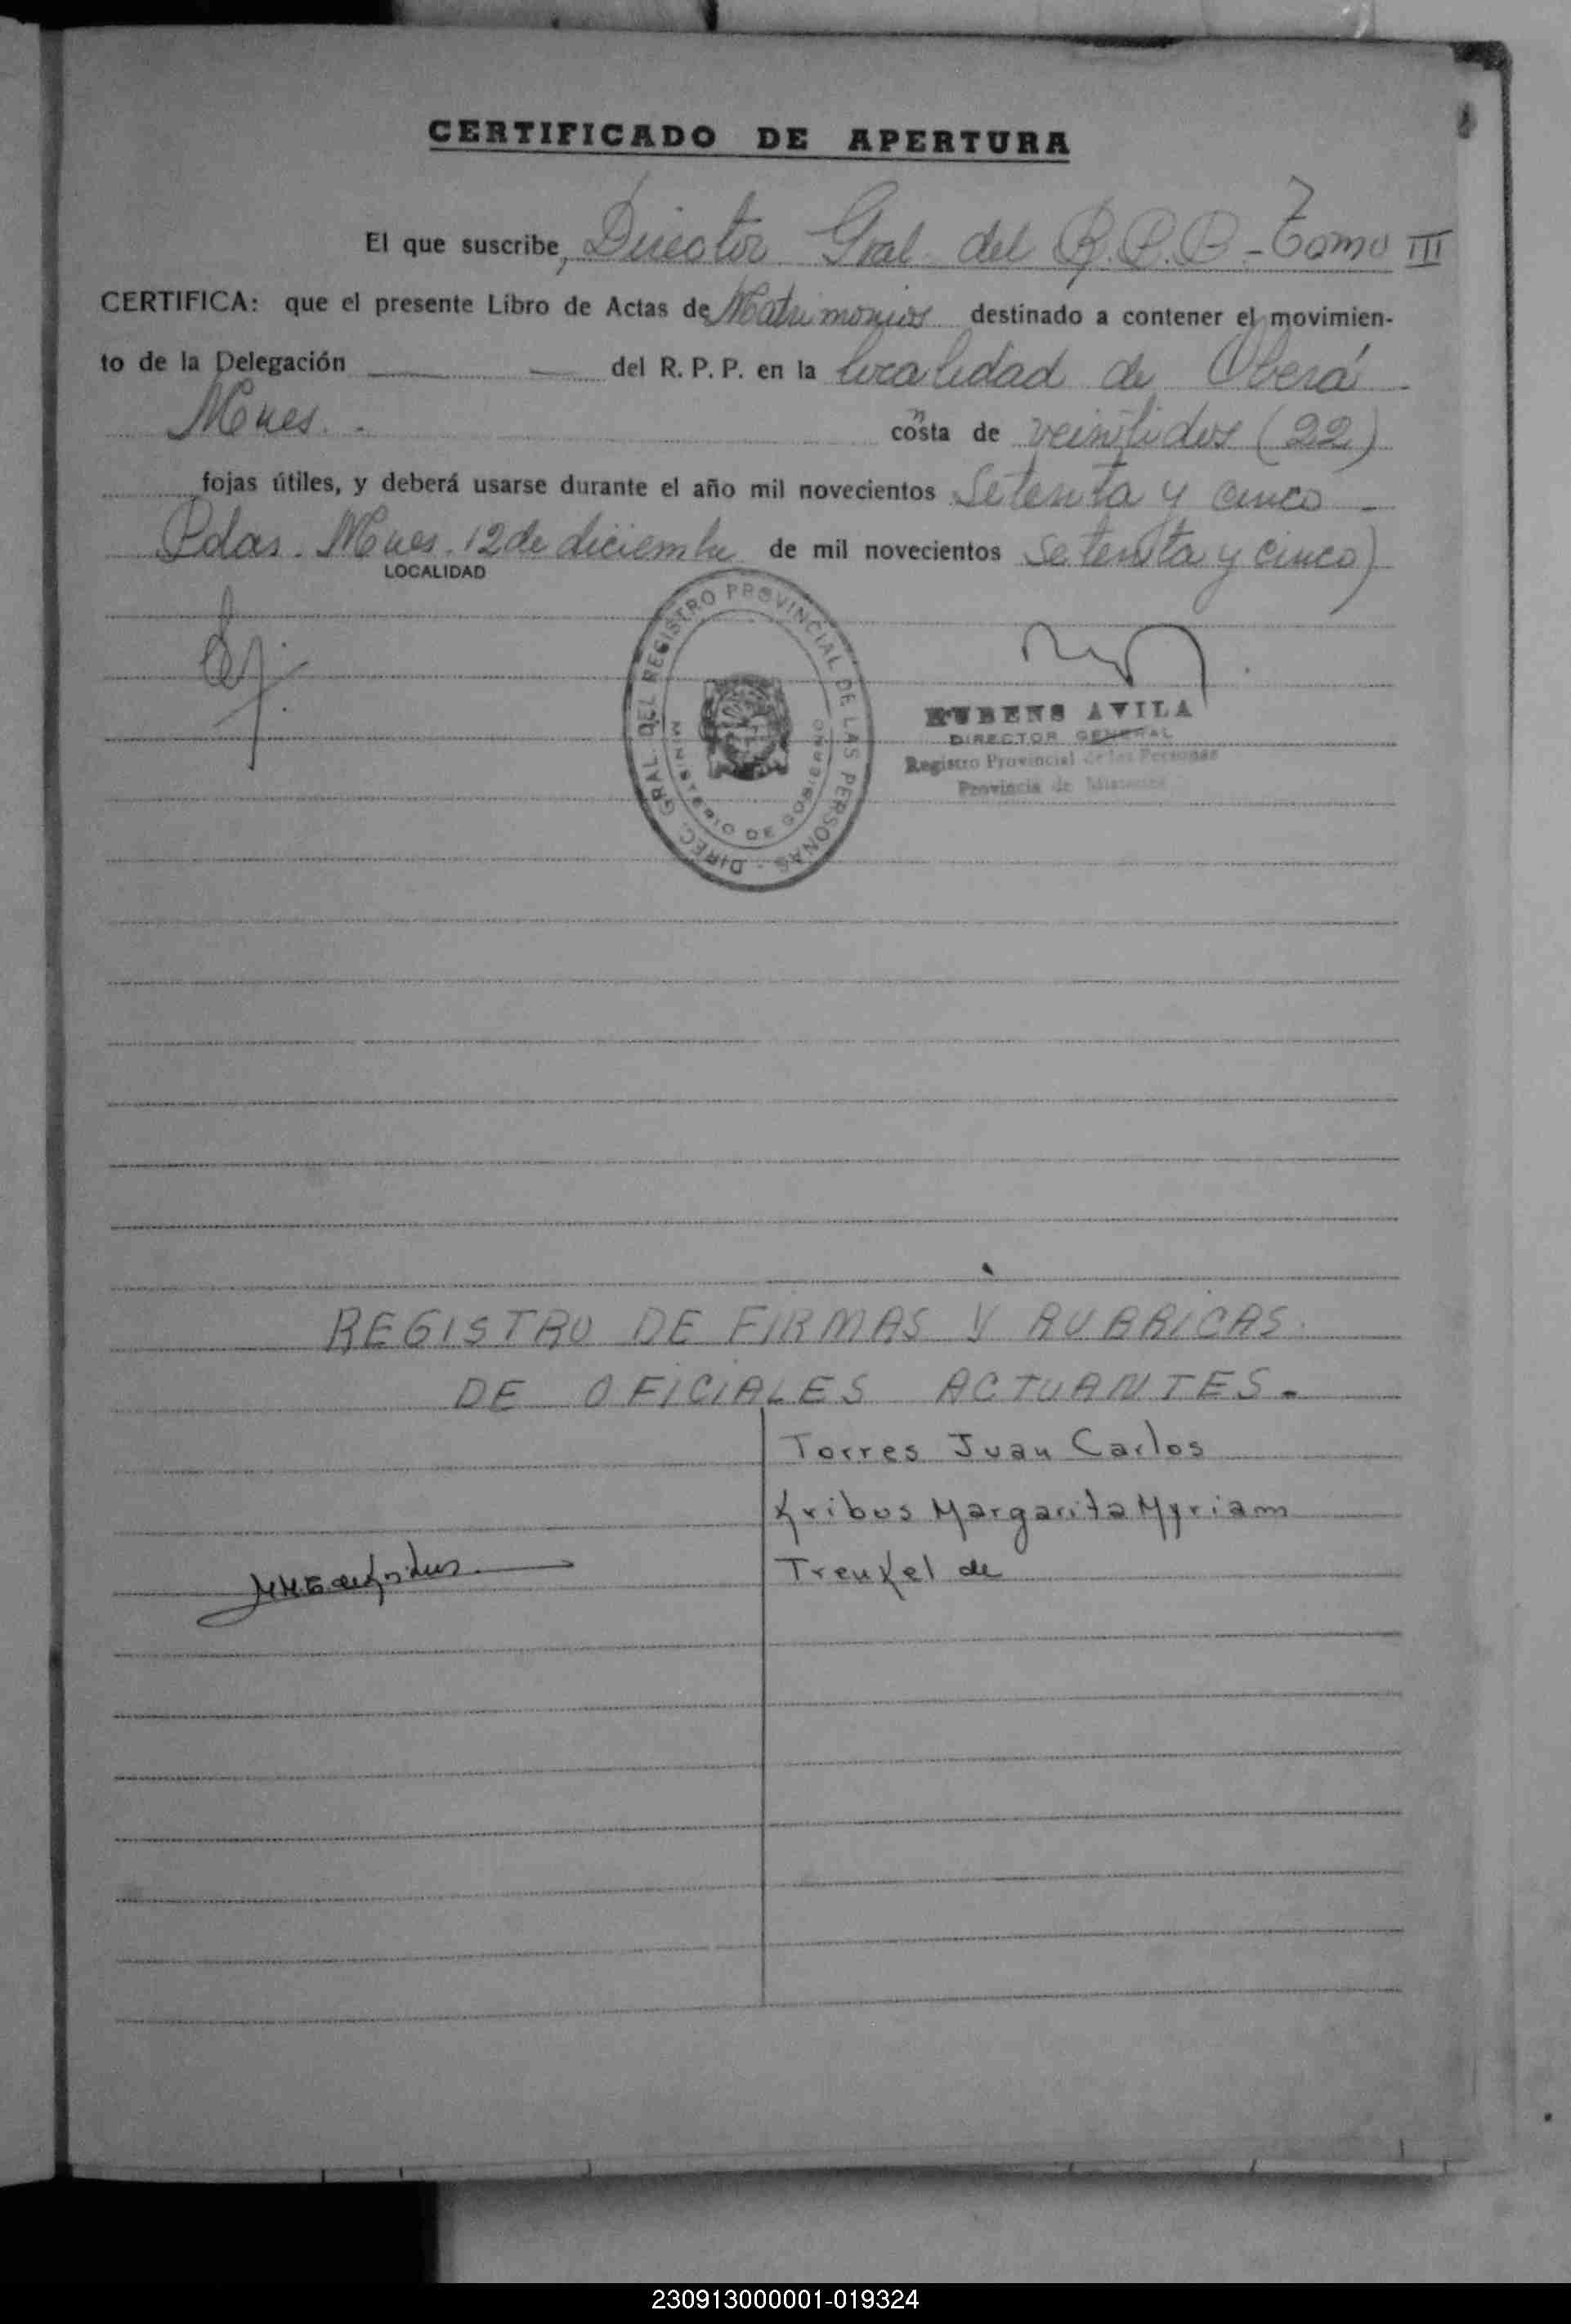 CERTIFICADO DE APERTURA
El que suscribe, Director Gral. del R.P.P - Tomo III
CERTIFICA: que el presente Libro de Actas de Matrimonios destinado a contener el movimien-
to de la Delegación del R. P. P. en la localidad de Oberá
Mnes. costa de veintidos (22)
fojas útiles, y deberá usarse durante el año mil novecientos Setenta y cinco
Pdas. Mnes. 12 de diciembre de mil novecientos setenta y cinco)
LOCALIDAD
DIREC. GRAL. DEL REGISTRO PROVINCIAL DE LAS PERSONAS -
MINISTERIO DE GOBIERNO
RUBENS AVILA
DIRECTOR GENERAL
Registro Provincial de las Personas
Provincia de Misiones
REGISTRO DE FIRMAS Y RUBRICAS.
DE OFICIALES ACTUANTES.
Torres Juan Carlos
Kribus Margarita Myriam
Trenkel de
230913000001-019324